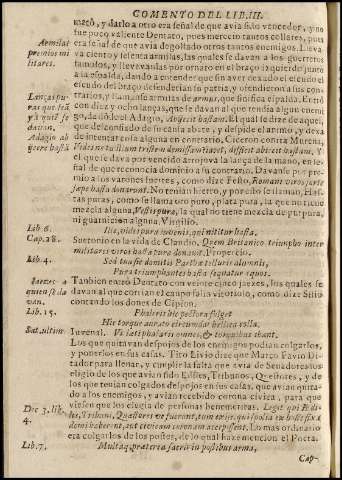 COMENTO DEL LIB. III.
mató, y darlo a otro era señal de que avia sido vencedor, y no
fue poco valiente Dentato, pues mereció tantos collares, que
Armillas
premios militares.
era señal de que avia degollado otros tantos enemigos. Lleva
va ciento y sesenta armilas, las quales se davan a los guerreros
famosos, y llevavanlas por ornato en el braço izquierdo junto
a la espalda, dando a entender que sin aver dexado el
escudo del braço defendieran su patria, y ofendieron a sus con
trarios, y llamanse armilas de
Lanças
con diez y ocho lanças, que se davan al que rendia algun enemi
go, de dõde el Adagio, Abijcit hastam. El qual se dize de aquel,
que desconfiado de su causa abate, y despide el animo, y dexa
Adagio abijcere hastã
de intentar cosa alguna en contrario. Ciceron contra Murena,
Y
el que se dava por vencido arrojava la lança de la mano, en se
ñal de que reconocia dominio a su contrario. Davanse por pre
mio a los varones fuertes, como dize Festo, Romani viros fortes
sæpe hasta donarunt. No tenian hierro, y por esso se llaman, Has
tas puras, como se llama oro puro, plata pura, la que no tiene
mezcla alguna, Vestis pura, la qual no tiene mezcla de purpura,
ni guarnicion alguna. Virgilio.
Lib. 6.
Ille, vides pura iuvenis, qui nititur hasta.
Cap. 28.
Suetonio en la vida de Claudio, Quem Britanico triumpho inter
militares viros hasta pura donavit. Propercio.
Lib. 4.
Sed tua sic domitis Parthæ telluris alumnis,
Pura triumphantes hasta sequatur equos.
Iaezes a
quien se davan.
Tanbien entró Dentato con veinte cinco jaezes, los quales se
davan al que corria el campo salia vitorioso, como dize Silio
contando los dones de Cipion.
Lib. 15.
Phaleris hic pectora fulget
Hic torque aurato circumdat bellica colla.
Sat. ultim.
Iuvenal. Vt læti phaleris omnes, & torquibus
Los que quitavan despojos de los enemigos podian colgarlos,
y ponerlos en sus casas. Tito Livio dize que Março Favio Di
tador para llenar, y cumplir la falta que avia de Senadores los
eligio de los que avian sido Ediles, Tribunos, Questores, y de
los que tenian colgados despojos en sus casas, que avian quita
do a los enemigos, y avian recebido corona civica, para que
Dec. 3. lib. 4.
viesen que los elegia de personas benemeritas.
les, Tribuni, Quæstores ve fuerant, tum ex ijs, qui spolia ex hoste fixa
domi haberent, aut civicam coronam accepissent. Lo mas ordinario
era colgarlos de los postes, de lo qual haze mencion el Poeta.
Lib. 7.
Multaq, præterea sacris in postibus arma,
Cap-